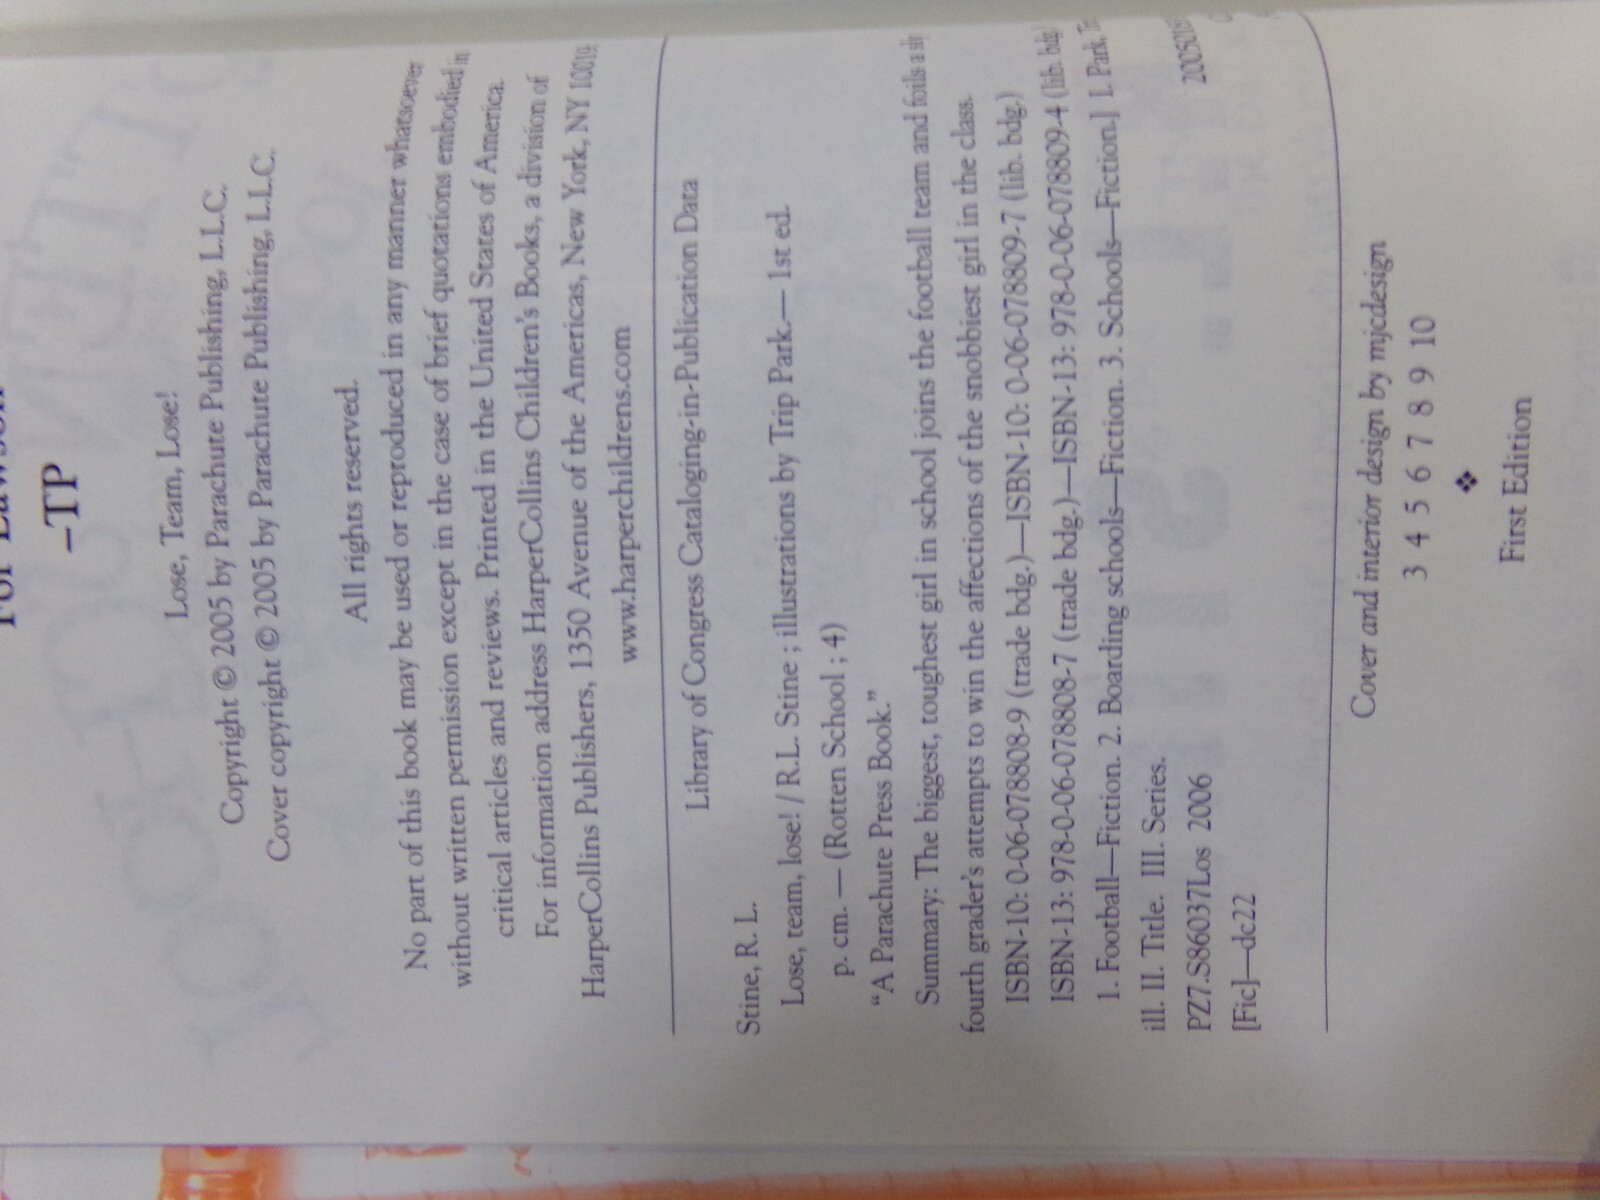 –TP
Lose, Team, Lose!
Copyright © 2005 by Parachute Publishing, L.L.C.
Cover copyright © 2005 by Parachute Publishing, L.L.C.
All rights reserved.
No part of this book may be used or reproduced in any manner whatsoever
without written permission except in the case of brief quotations embodied in
critical articles and reviews. Printed in the United States of America.
For information address HarperCollins Children's Books, a division of
HarperCollins Publishers, 1350 Avenue of the Americas, New York, NY 10019.
www.harperchildrens.com
Library of Congress Cataloging-in-Publication Data
Stine, R. L.
Lose, team, lose! / R.L. Stine ; illustrations by Trip Park.— 1st ed.
p. cm. — (Rotten School ; 4)
“A Parachute Press Book.”
Summary: The biggest, toughest girl in school joins the football team and foils a
fourth grader's attempts to win the affections of the snobbiest girl in the class.
ISBN-10: 0-06-078808-9 (trade bdg.)—ISBN-10: 0-06-078809-7 (lib. bdg.)
ISBN-13: 978-0-06-078808-7 (trade bdg.)—ISBN-13: 978-0-06-078809-4 (lib. bdg.)
1. Football—Fiction. 2. Boarding schools—Fiction. 3. Schools—Fiction.] I. Park,
ill. II. Title. III. Series.
PZ7.S86037Los 2006
[Fic]—dc22
Cover and interior design by mjcdesign
3 4 5 6 7 8 9 10
❖
First Edition